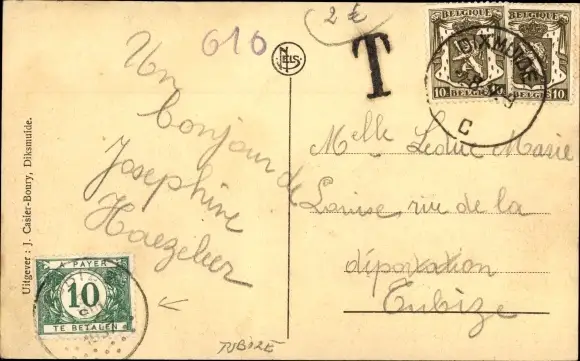 2 €
610
T
NELS
BELGIQUE BELGIQUE
10 BELGIE BELGIE 10
DIXMUDE
C
Un
bonjour de
Josephine
Haezeber
Melle Leduc Marie
Louise rue de la
déportation
Tubize
Uitgever : J. Casier-Boury, Diksmuide.
A PAYER
10
TE BETALEN
TUBIZE